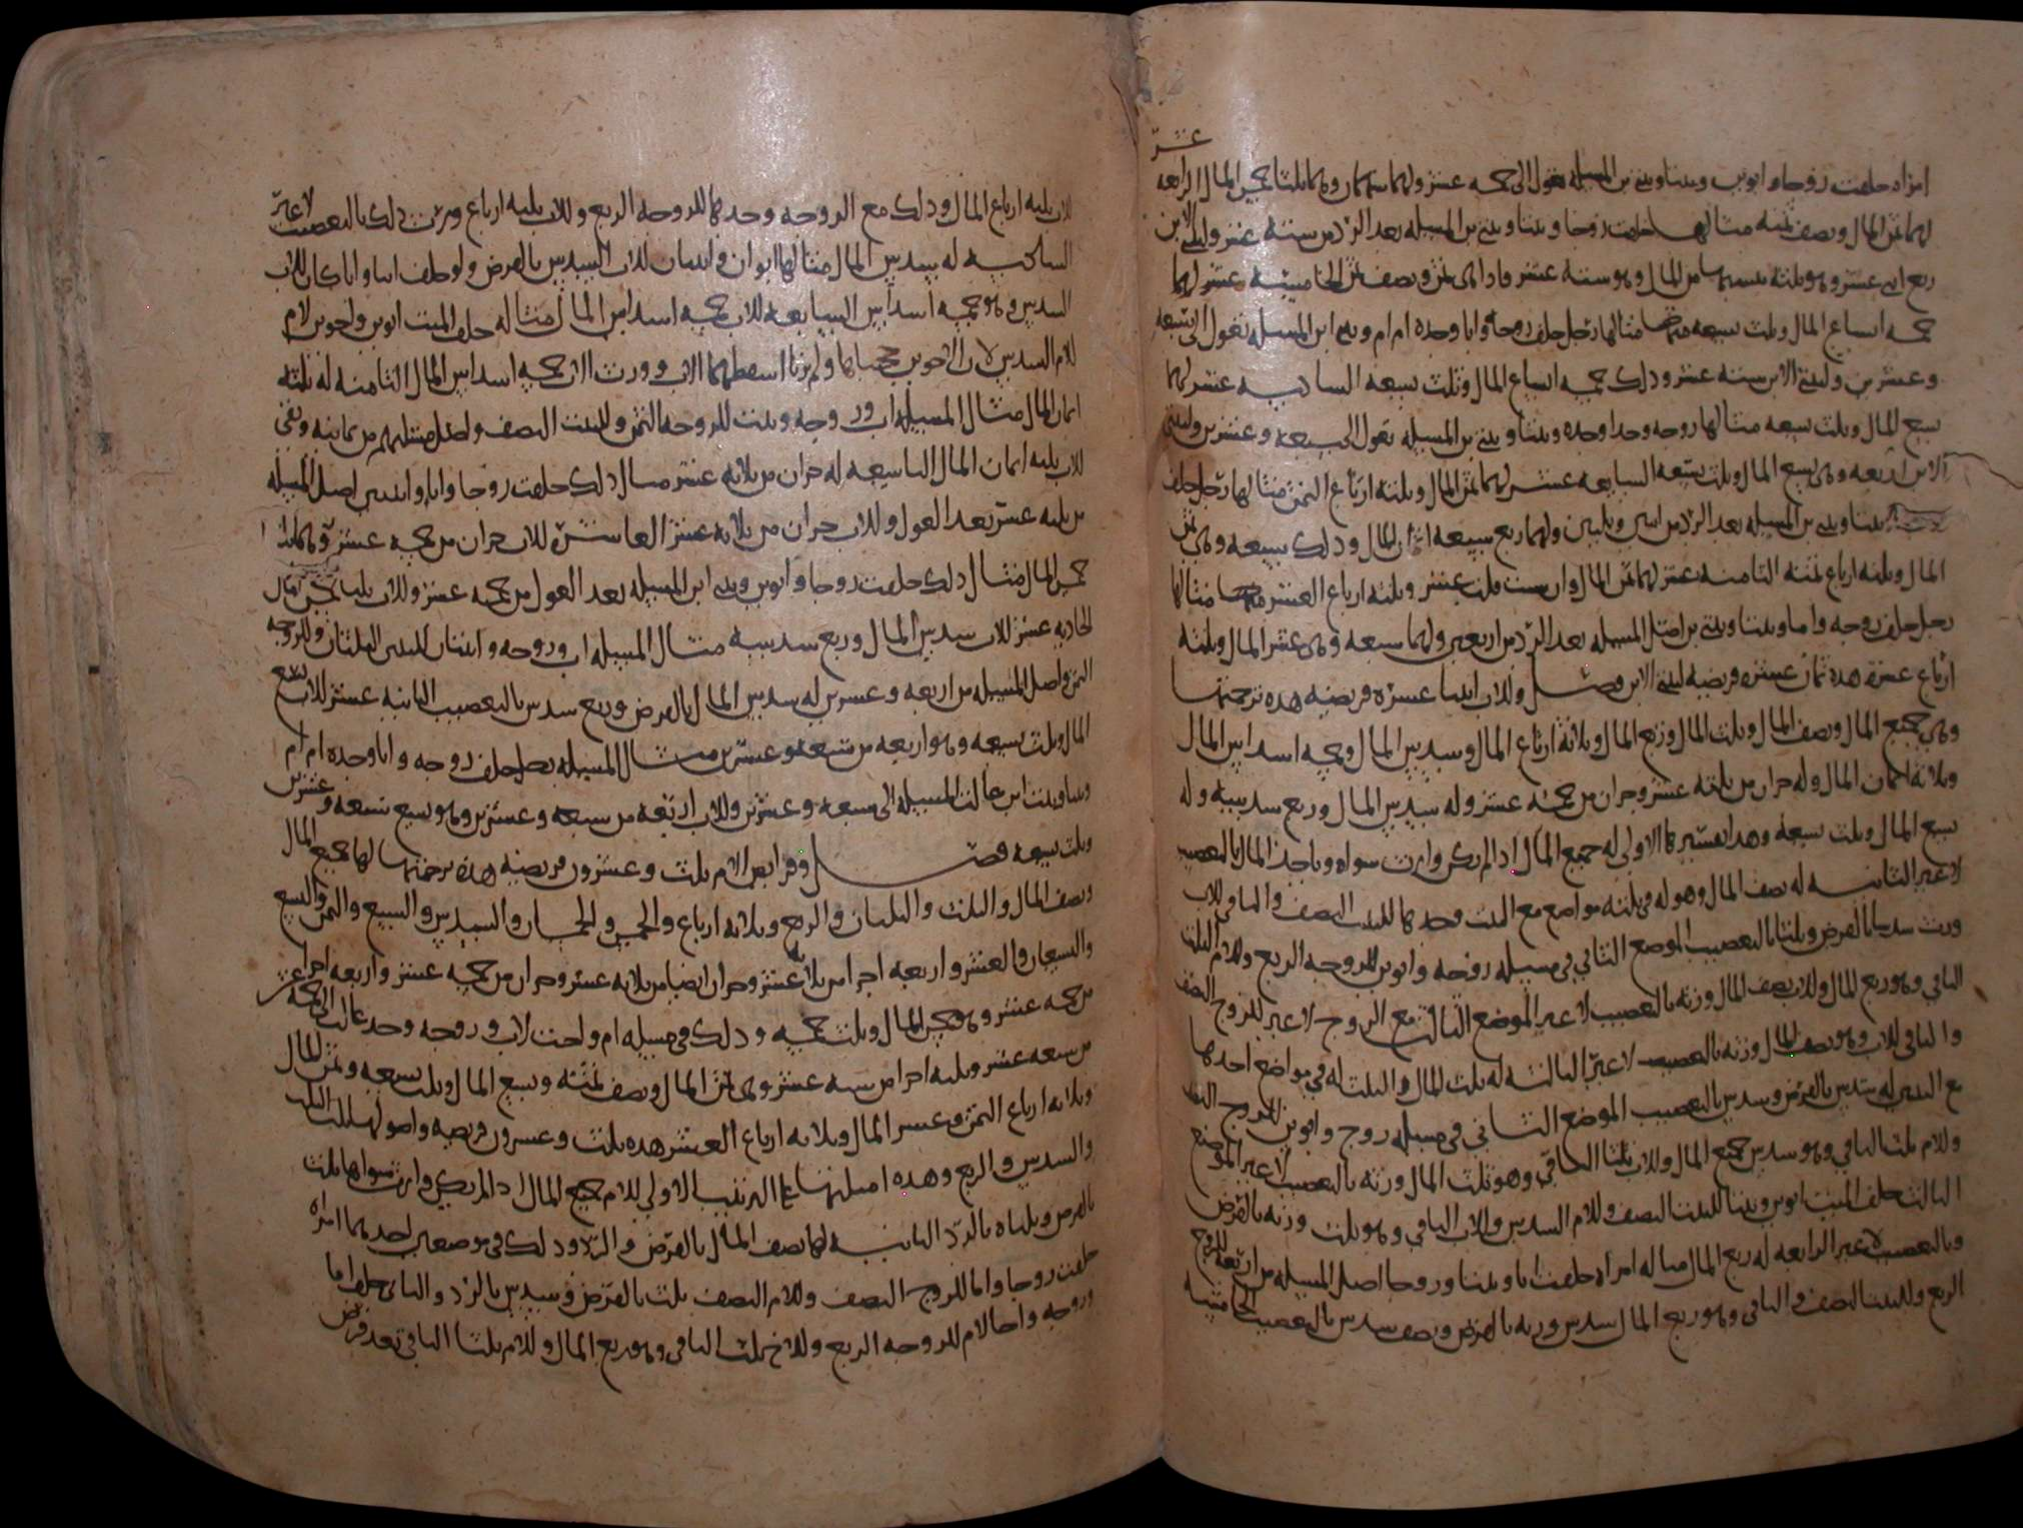 عشر
امراه خلفت زوجا وابوين وبنتا وبنتي بن المسله تعول الى خمسه عشر ولهما سهمان وهما ثلثا خمس المال الرابعه
لهما ثمن المال ونصف ثمنه مثالها خلفت زوجا وبنتا وبنتي بن المسله بعد الرد من سته عشر ولبنتي الابن
ربع اثنى عشر وهو ثلثه من المال وهو سته عشر فاذا هي ثمن ونصف ثمن الخامسه عشر لهما
خمسه اتساع المال وثلث تسعه مثالها رجل خلف زوجه وابا وجده ام ام وبنتي ابن المسله تعول الى تسعه
وعشرين ولبنتي الابن سته عشر وذلك خمسه اتساع المال وثلث تسعه السادسه عشر لهما
تسع المال وثلث تسعه مثالها زوجه وجدا وجده وبنتا وبنتي بن المسله تعول الى سبعه وعشرين ولبنتي
الابن اربعه وهى تسع المال وثلث تسعه السابعه عشر لهما ثمن المال وثلثه ارباع الثمن مثالها رجل خلف
بنتا وبنتي بن المسله بعد الرد من اثنين وثلثين ولهما ربع سبعه اثمان المال وذلك سبعه وهى ثمن
المال وثلثه ارباع ثمنه الثامنه عشر لهما عشر المال وان شيت قلت عشر وثلثه ارباع العشر مثالها
رجل خلف زوجه واما وبنتا وبنتي بن اصل المسله بعد الرد من اربعين ولهما سبعه وهى عشر المال وثلثه
ارباع عشره هذه ثمان عشره فريضه لبنتي الابن فصل وللاب اثنتا عشره فريضه هذه ترجمتها
وهي جميع المال ونصف المال وثلث المال وربع المال وثلاثه ارباع المال وسدس المال وخمسه اسداس المال
وثلاثه اثمان المال وله جزان من ثلثه عشر وجزان من خمسه عشر وله سدس المال وربع سدسه وله
تسع المال وثلث تسعه وهذا تفسيرها الاولى له جميع المال اذا لم يكن وارث سواه وياخذ المال بالتعصيب
لا غير الثانيه له نصف المال وهو له في ثلثه مواضع مع البنت وحدها للبنت النصف والباقي للاب
ورث سدسا بالفرض وثلثا بالتعصيب الموضع الثاني في مسله زوجه وابوين للزوجه الربع وللام ثلث
الباقي وهو ربع المال وللاب نصف المال ورثه بالتعصيب لا غير الموضع الثالث مع الزوج لا غير للزوج النصف
والباقي للاب وهو نصف المال ورثه بالتعصيب لا غير الثالثه له ثلث المال والثلث له في مواضع احدها
مع البنتين له سدس بالفرض وسدس بالتعصيب الموضع الثاني في مسله زوج وابوين للزوج النصف
وللام ثلث الباقي وهو سدس جميع المال وللاب ثلثا الباقي وهو ثلث المال ورثه بالتعصيب لا غير الموضع
الثالث خلف الميت ابوين وبنتا للبنت النصف وللام السدس وللاب الباقي وهو ثلث ورثه بالفرض
وبالتعصيب لا غير الرابعه له ربع المال مثاله امراه خلفت ابا وبنتا وزوجا اصل المسله من اربعه للزوج
الربع وللبنت النصف والباقي وهو ربع المال سدس ورثه بالفرض ونصف سدس بالتعصيب الخامسه
للاب ثلثه ارباع المال وذلك مع الزوجه وحدها للزوجه الربع وللاب ثلثه ارباع ورث ذلك بالتعصيب لا غير
السادسه له سدس المال مثالها ابوان وابنان للاب السدس بالفرض ولو خلف ابنا وابا كان للاب
السدس وهو خمسه اسداس السابعه للاب خمسه اسداس المال مثاله خلف الميت ابوين واخوين لام
للام السدس لان الاخوين حجباها ولم يرثا اسقطهما الاب وورث الاب خمسه اسداس المال الثامنه له ثلثه
اثمان المال مثال المسله اب وزوجه وبنت للزوجه الثمن وللبنت النصف واصل مسلتهم من ثمانيه وبقى
للاب ثلثه اثمان المال التاسعه له جزان من ثلاثه عشر مثال ذلك خلفت زوجا وابا وابنتين اصل المسله
من ثلثه عشر بعد العول وللاب جزان من ثلاثه عشر العاشره للاب جزان من خمسه عشر وهما ثلثا
خمس المال مثال ذلك خلفت زوجا وابوين وبنتي ابن المسله بعد العول من خمسه عشر وللاب ثلثا خمس المال
الحاديه عشر للاب سدس المال وربع سدسه مثال المسله اب وزوجه وابنتان للبنتين الثلثان وللزوجه
الثمن واصل المسله من اربعه وعشرين له سدس المال بالفرض وربع سدس بالتعصيب الثانيه عشر للاب تسع
المال وثلث تسعه وهو اربعه من سبعه وعشرين مثال المسله رجل خلف زوجه وابا وجده ام ام
وبنتا وبنت ابن عالت المسله الى سبعه وعشرين وللاب اربعه من سبعه وعشرين وهو تسع تسعه وعشرين
وثلث تسعه فصل وفرايض الام ثلث وعشرون فريضه هذه ترجمتها لها جميع المال
ونصف المال والثلث والثلثان والربع وثلاثه ارباع والخمس والخمسان والسدس والسبع والثمن والتسع
والتسعان والعشر واربعه اجزا من ثلاثه عشر وجزان ايضا من ثلاثه عشر وجزان من خمسه عشر واربعه اجزا
من خمسه عشر وهو خمس المال وثلث خمسه وذلك في مسله ام واخت لاب وزوجه وجد عالت الى خمسه عشر
من سبعه عشر وثلثه اجزا من سته عشر وهى ثمن المال ونصف ثمنه وتسع المال وثلث تسعه وثمن المال
وثلاثه ارباع الثمن وعشر المال وثلاثه ارباع العشر هذه ثلث وعشرون فريضه واصولها الثلث
والسدس والربع وهذه امثلتها على الترتيب الاولى للام جميع المال اذا لم يكن وارث سواها ثلث
بالفرض وثلثاه بالرد الثانيه لها نصف المال بالفرض والرد وذلك في موضعين احدهما امراه
خلفت زوجا واما للزوج النصف وللام النصف ثلث بالفرض وسدس بالرد والثاني خلف اما
وزوجه واخا لام للزوجه الربع وللاخ ثلث الباقي وهو ربع المال وللام ثلثا الباقي بعد فرض